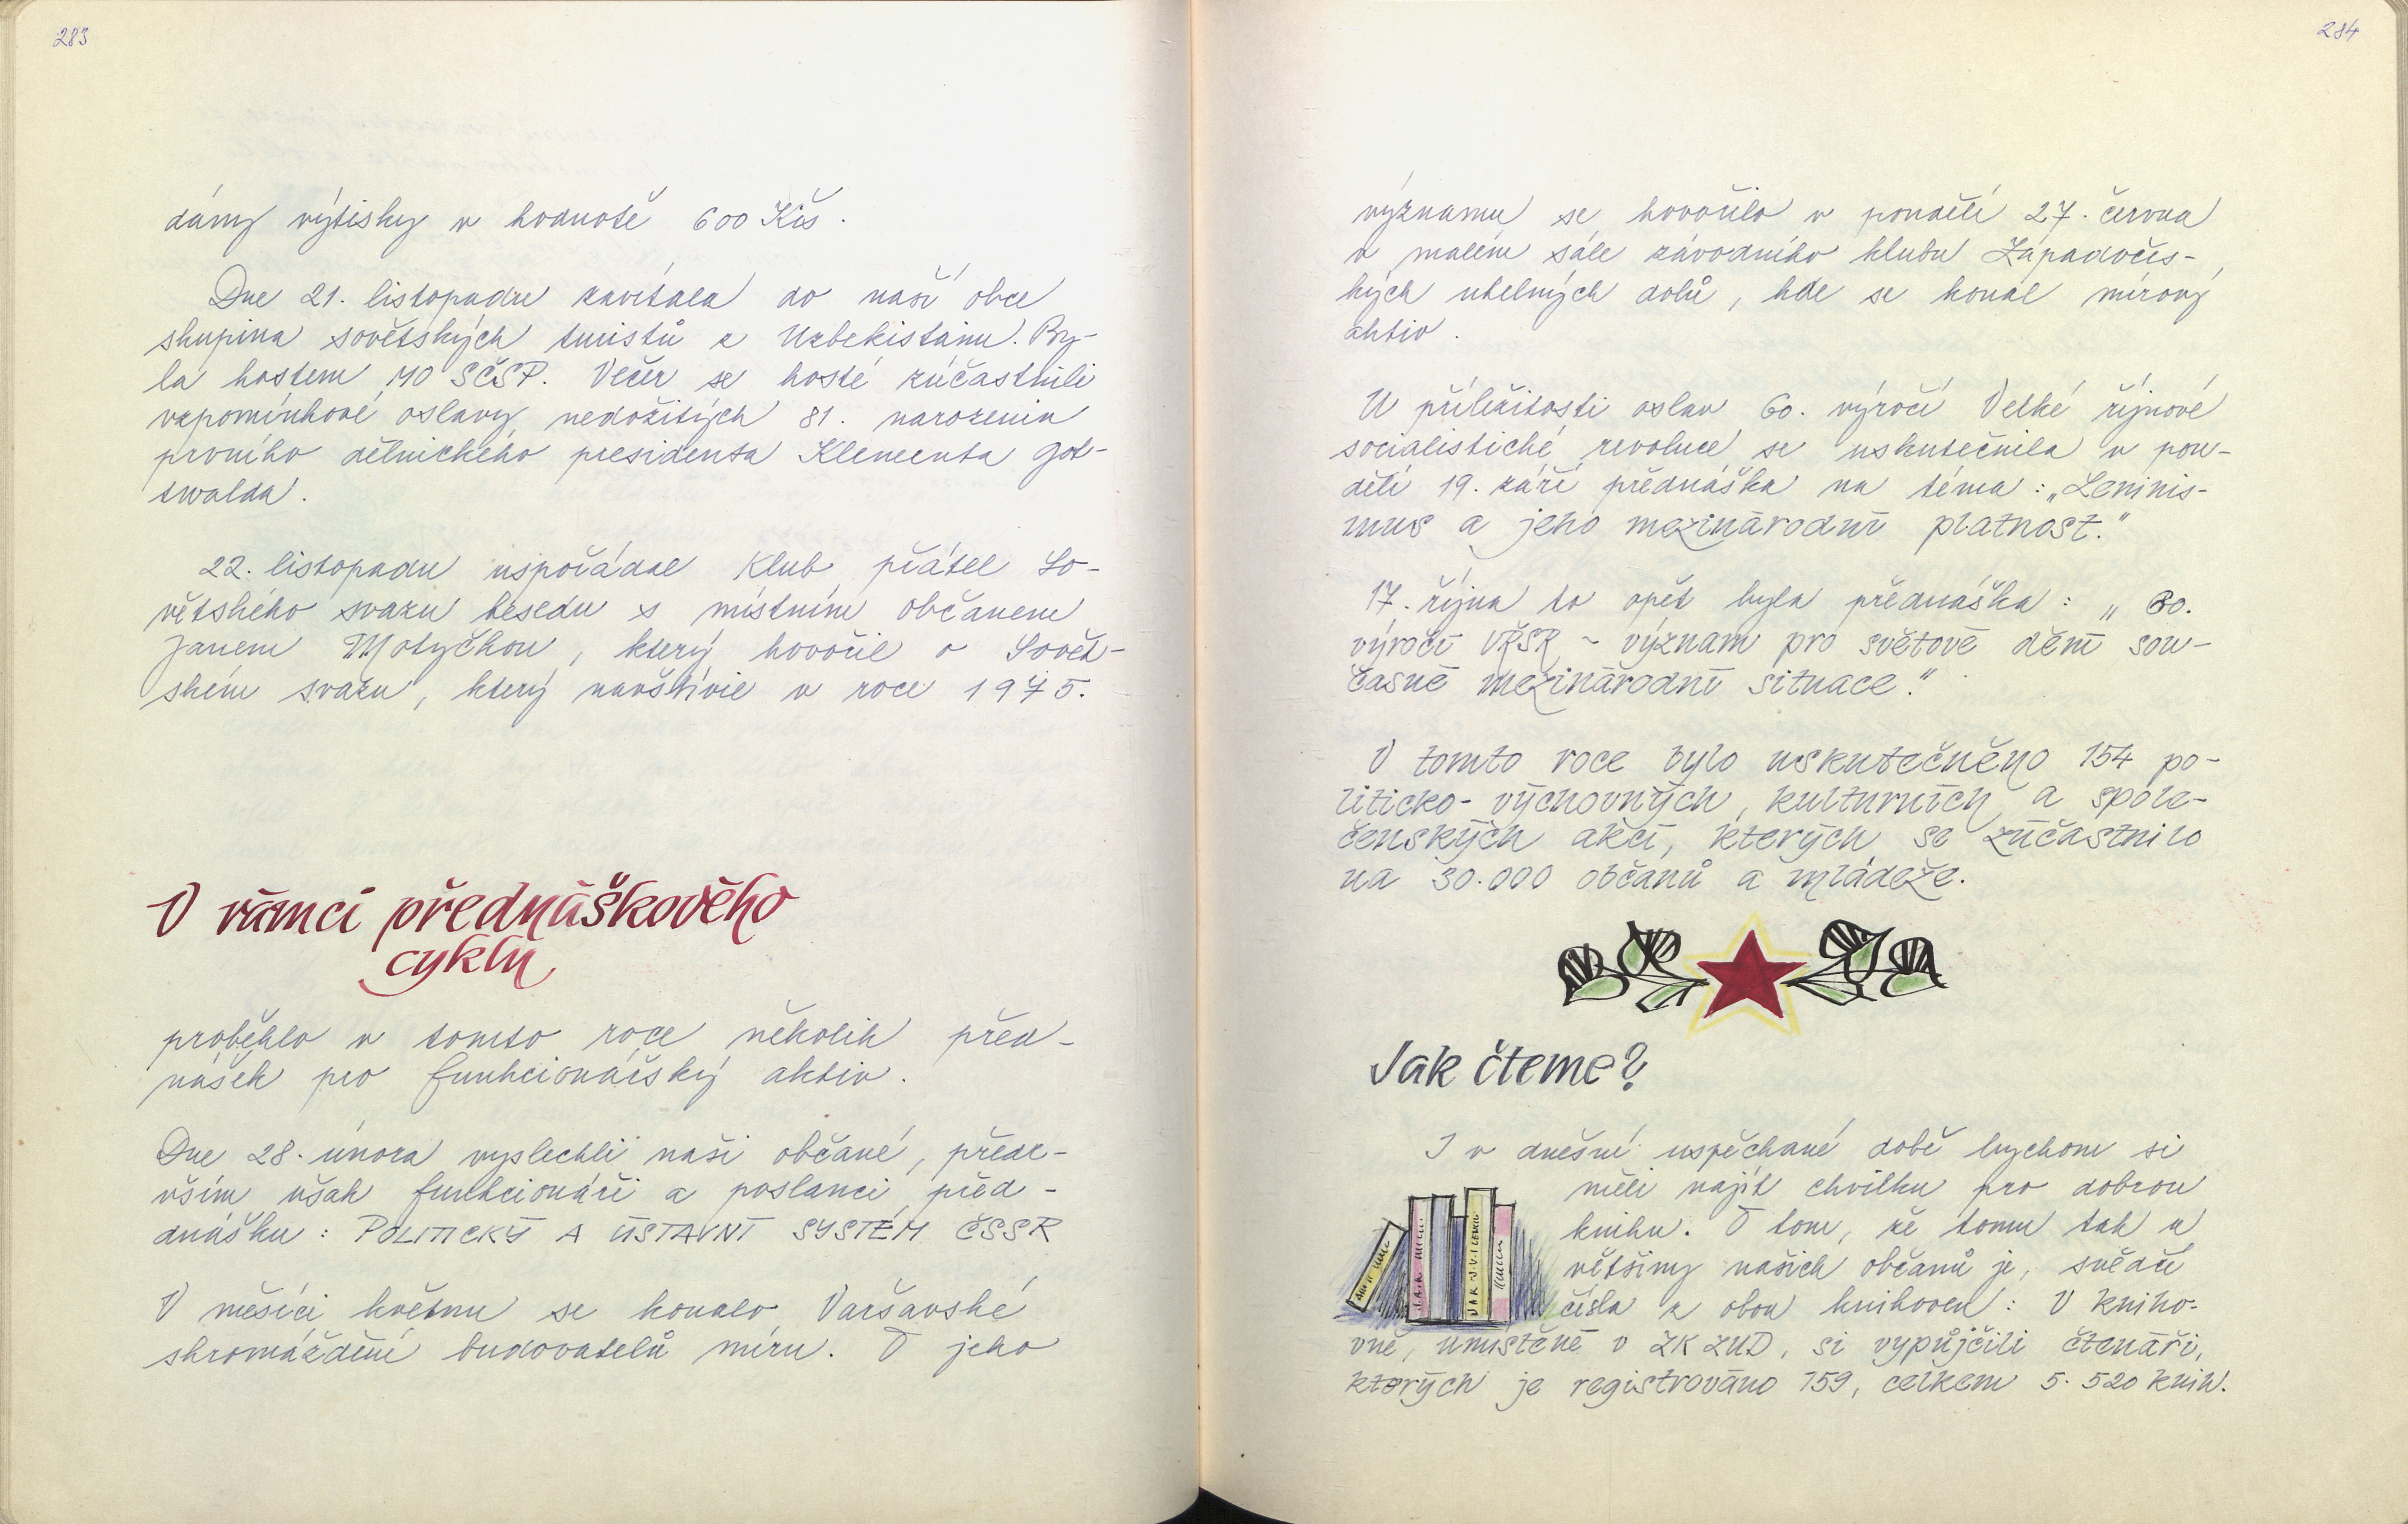 283
dány výtisky v hodnotě 600 Kčs.
Dne 21. listopadu zavítala do naší obce
skupina sovětských turistů z Uzbekistánu. By-
la hostem MO SČSP. Večer se hosté zúčastnili
vzpomínkové oslavy nedožitých 81. narozenin
prvního dělnického presidenta Klementa Got-
twalda.
22. listopadu uspořádal Klub přátel So-
větského svazu besedu s místním občanem
Janem Motyčkou, který hovořil o Sovět-
ském svazu, který navštívil v roce 1975.
V rámci přednáškového
cyklu
proběhlo v tomto roce několik před-
nášek pro funkcionářský aktiv.
Dne 28. února vyslechli naši občané, přede-
vším však funkcionáři a poslanci před-
dnášku: POLITICKÝ A ÚSTAVNÍ SYSTÉM ČSSR
V měsíci květnu se konalo Varšavské
shromáždění budovatelů míru. O jeho
284
významu se hovořilo v pondělí 27. června
v malém sále závodního klubu Západočes-
kých uhelných dolů, kde se konal mírový
aktiv.
U příležitosti oslav 60. výročí Velké říjnové
socialistické revoluce se uskutečnila v pon-
dělí 19. září přednáška na téma: „Leninis-
mus a jeho mezinárodní platnost."
17. října to opět byla přednáška: „60.
výročí VŘSR ~ význam pro světové dění sou-
časné mezinárodní situace."
V tomto roce bylo uskutečněno 154 po-
liticko-výchovných, kulturních a spole-
čenských akcí, kterých se zúčastnilo
na 30.000 občanů a mládeže.
Jak čteme?
I v dnešní uspěchané době bychom si
měli najít chvilku pro dobrou
knihu. O tom, že tomu tak u
většiny našich občanů je, svědčí
čísla z obou knihoven: V kniho-
vně, umístěné v ZK ZUD, si vypůjčili čtenáři,
kterých je registrováno 159, celkem 5.520 knih.